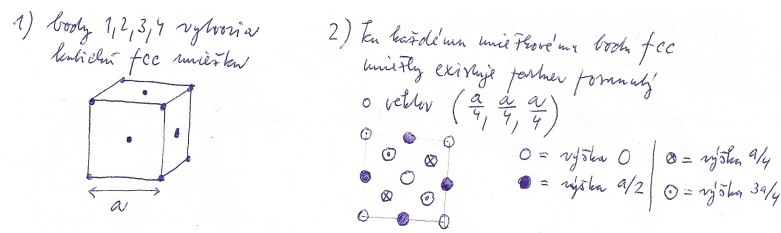 1) body 1,2,3,4 vytvoria
kubickú fcc mriežku
a
2) Ku každému mriežkovému bodu fcc
mriežky existuje partner posunutý
o vektor (a/4, a/4, a/4)
○ = výška 0
● = výška a/2
⊗ = výška a/4
⊙ = výška 3a/4